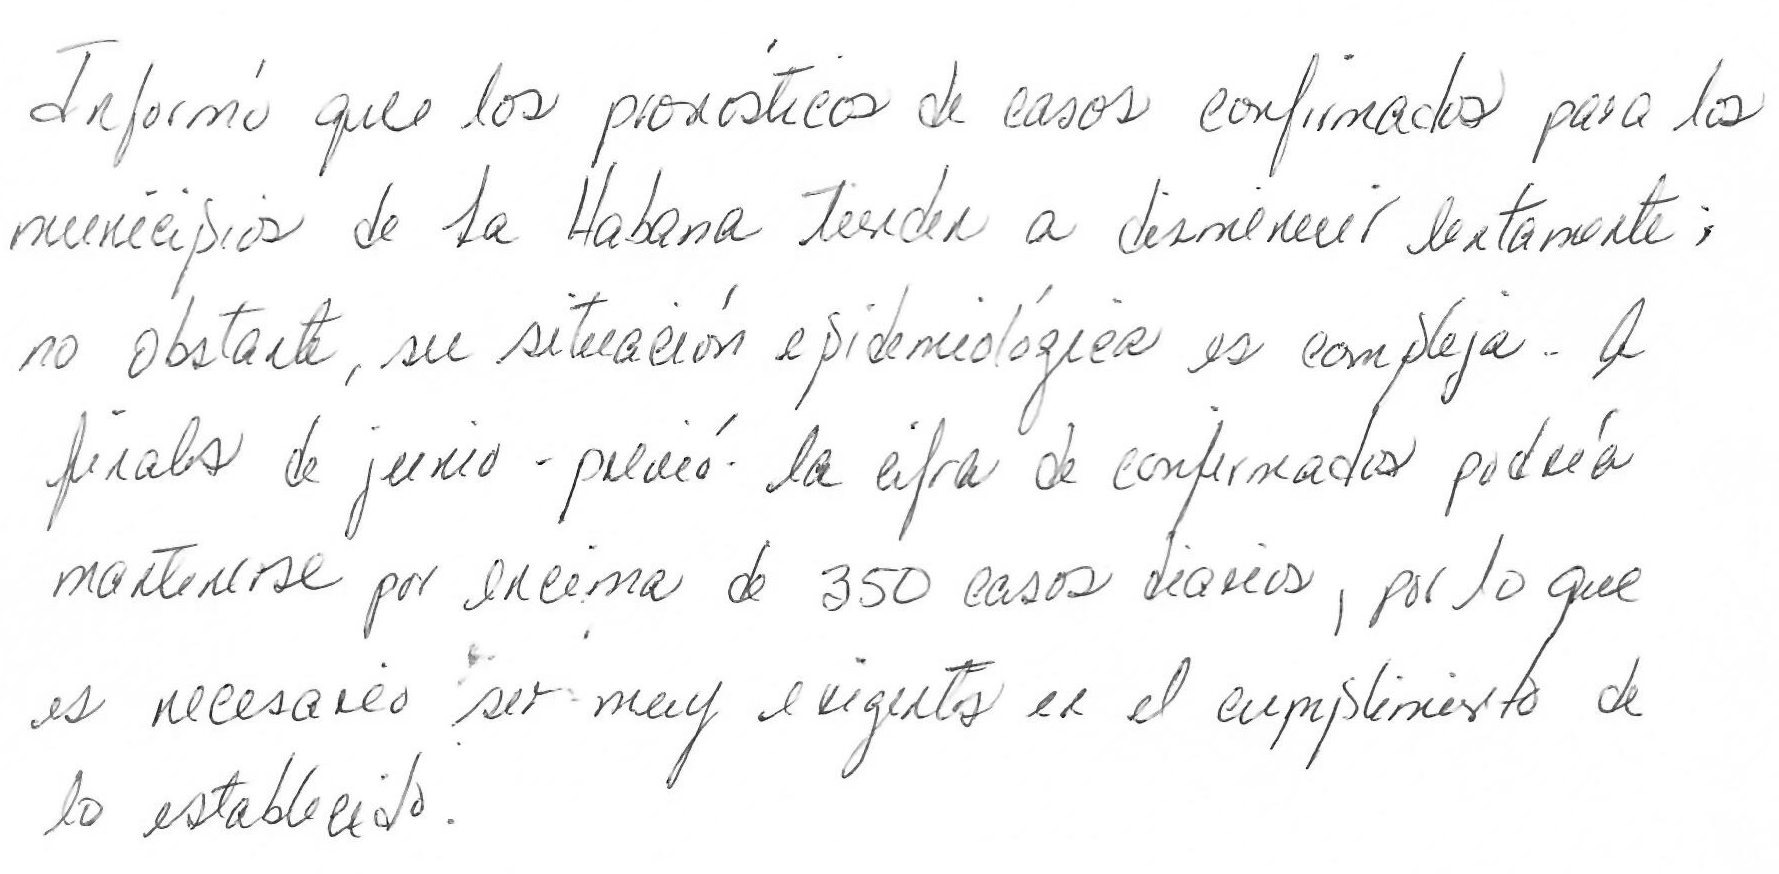 Informó que los pronósticos de casos confirmados para los
municipios de La Habana tienden a disminuir lentamente;
no obstante, su situación epidemiológica es compleja. A
finales de junio -previó- la cifra de confirmados podría
mantenerse por encima de 350 casos diarios, por lo que
es necesario ser muy exigentes en el cumplimiento de
lo establecido.